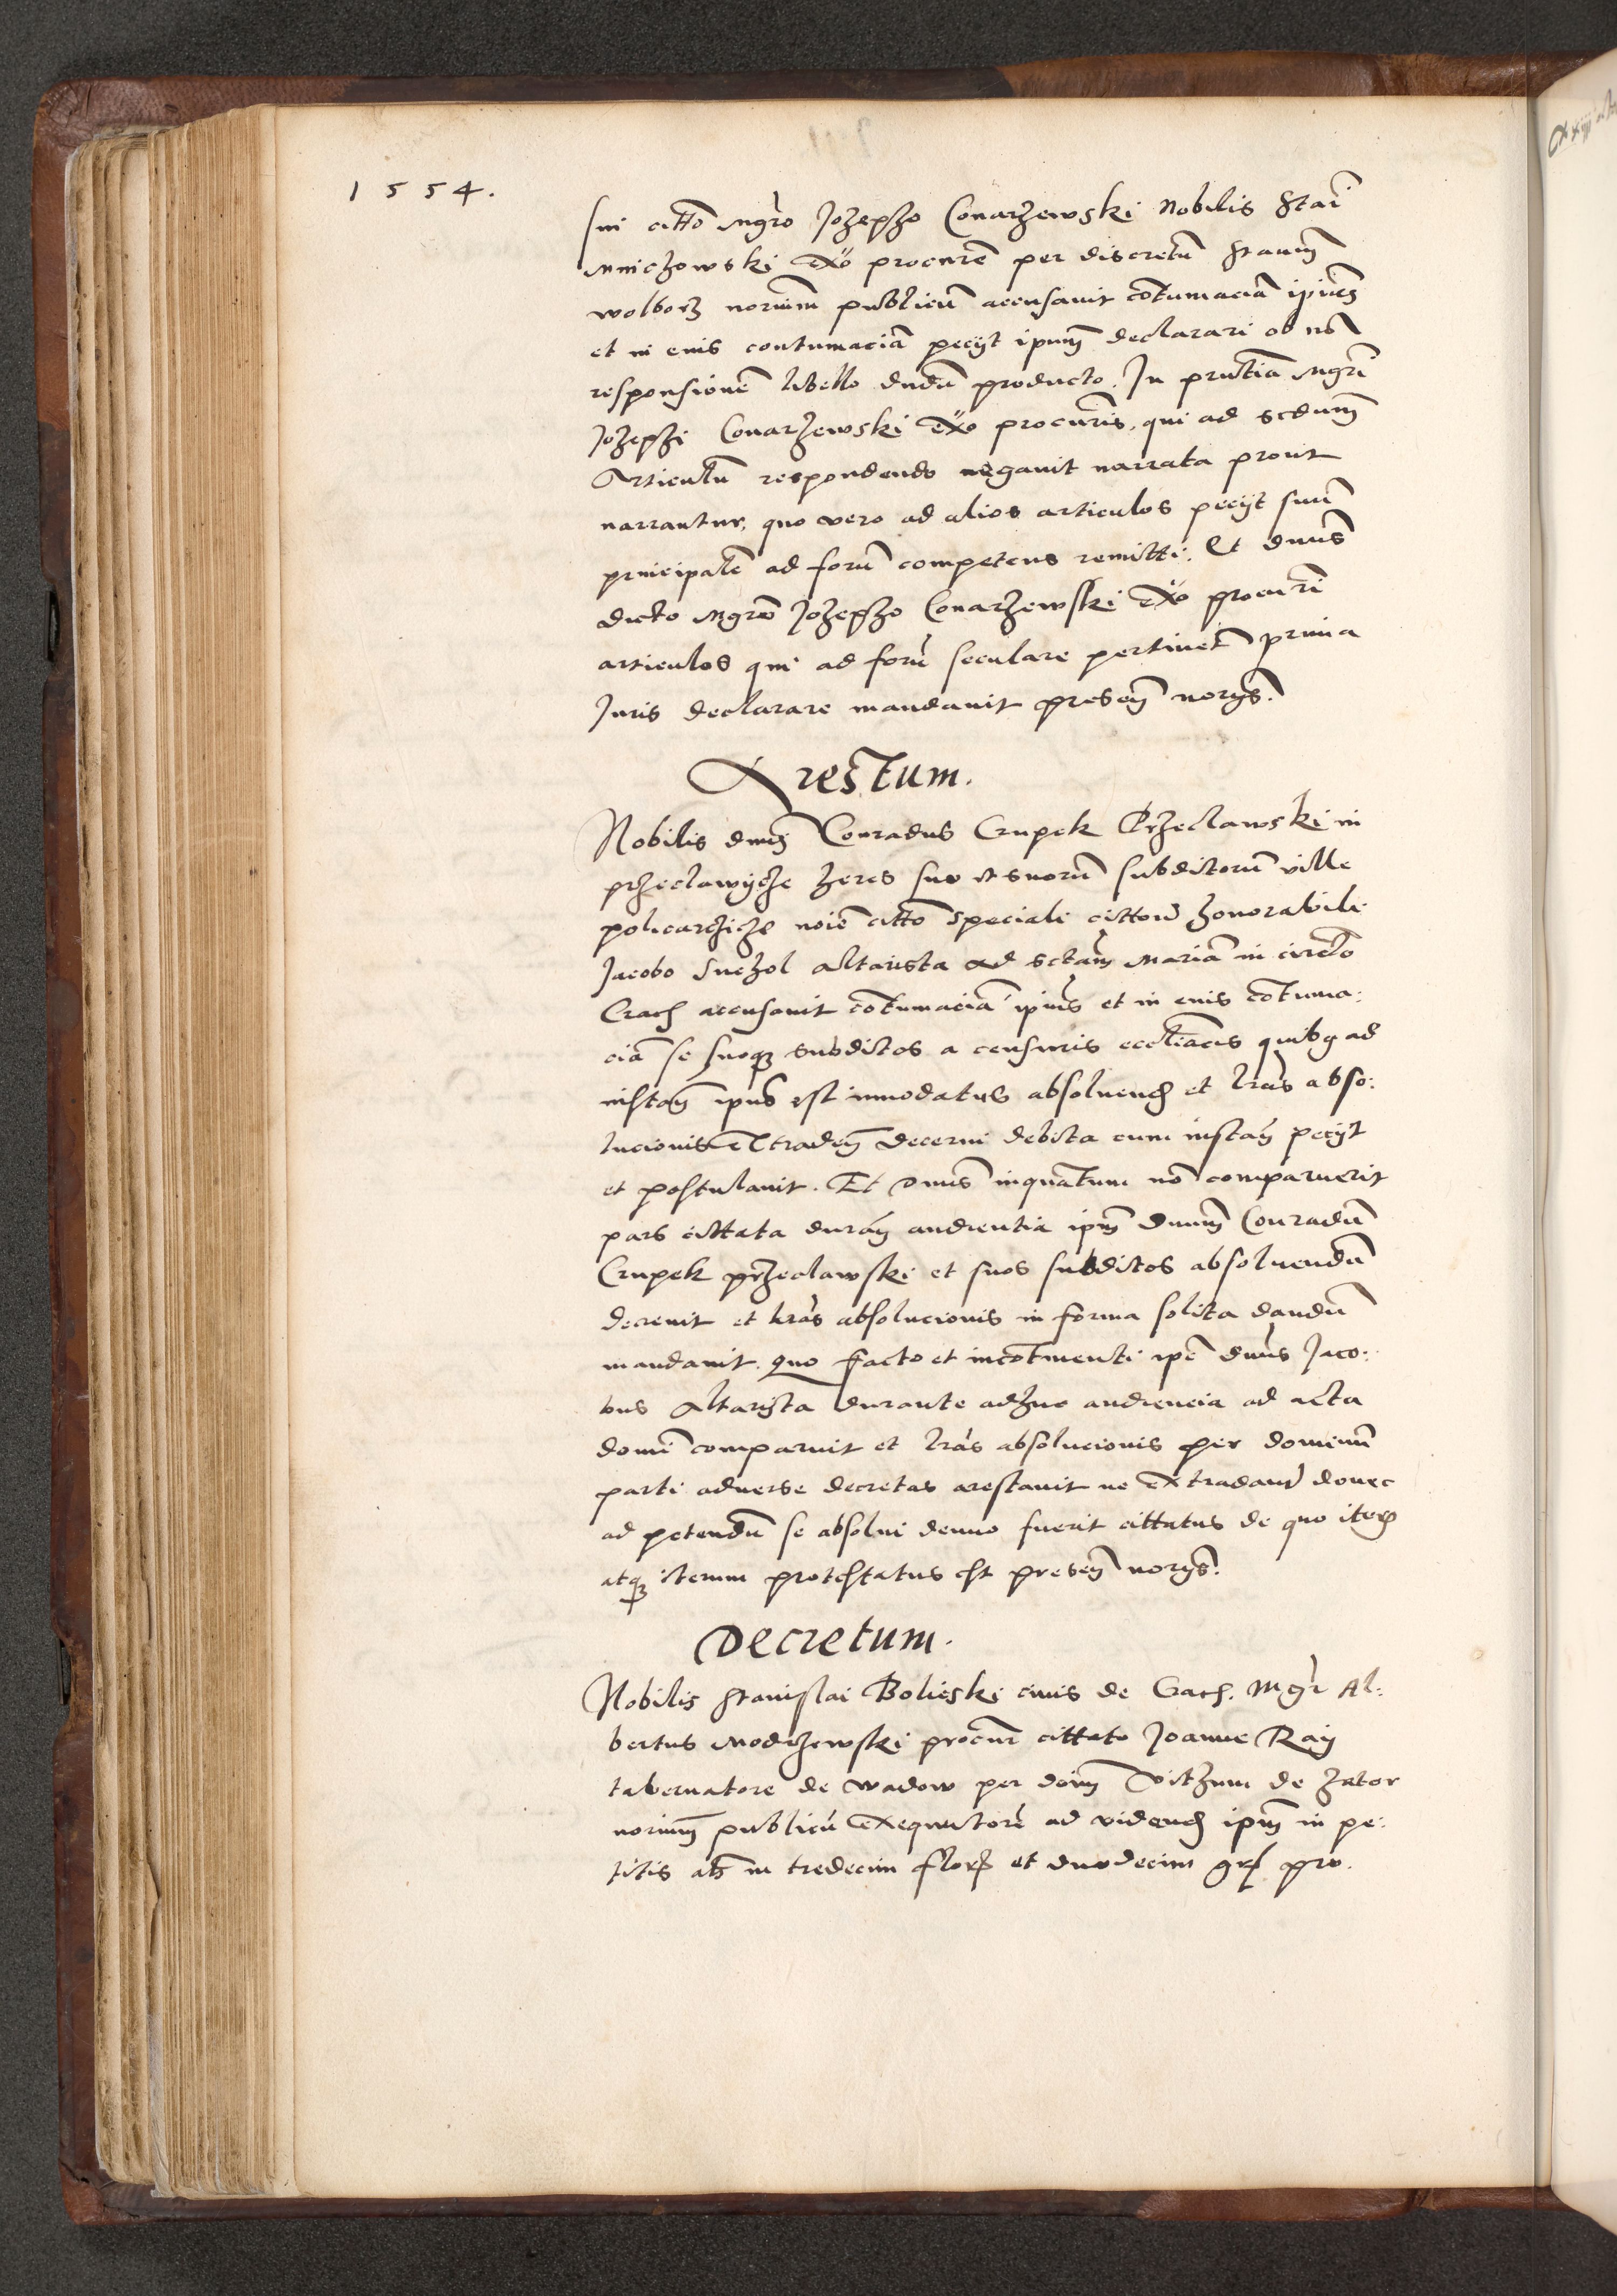 1554.
sui citto Mgro Jozepho Conarzewski Nobilis Stai
Mniczowski exo procure per discretu Stanum
wolborz norium publicum accusavit cotumacia ipius
et in euis contumacia petiit ipum declarari ob no
responsione libello dudu producto. In pntia Mgri
Jozephi Conarzewski exo procuris, qui ad scdum
Articulu respondendo negavit narrata prout
narrantur, quo vero ad alios articulos petiit suu
principale ad foru competens remitti. Et dnus
dicto Mgro Jozepho Conarzewski exo procuri
articulos qui ad foru seculare pertinet prima
Juris declarare mandavit presen norys.
Arestum.
Nobilis dnus Conradus Crupek Przeclawski in
przeclawycze heres suo et suorum subditorum ville
policarzicze noie citto speciali cittou honorabili
Jacobo altarista ad sctam Mariam in circlo
Crach accusavit cotumacia ipius et in euis cotuma:
cia se suosq subditos a censuris eccliacis quibq ad
instan ipius est innodatus absoluend et lras abso:
lucionis extraden decerni debita cum instan petiit
et postulavit. Et dnus inquatum no comparuerit
pars cittata duran audientia ipum dnum Conradu
Crupek przeclawski et suos subditos absoluendu
decrevit et lras absolucionis in forma solita dandu
mandavit. Quo facto et incotinenti ipe dnus Jaco:
bus Altarista durante adhuc audiencia ad acta
domi comparuit et lras absolucionis per dominu
parti adverse decretas arestavit ne extradant donec
ad petendu se absolui denuo fuerit cittatus de quo iteru
atq iterum protestatus est presen norys.
Decretum.
Nobilis Stanislai Bolieski civis de Crach. Mgr Al:
bertus Modrzewski procur cittato Joanne Ray
tabernatore de wadow per doim Vitzum de zator
norium publicu exequutore ad vidend ipum in pe:
titis als in tredecim flor et duodecim gr pro.